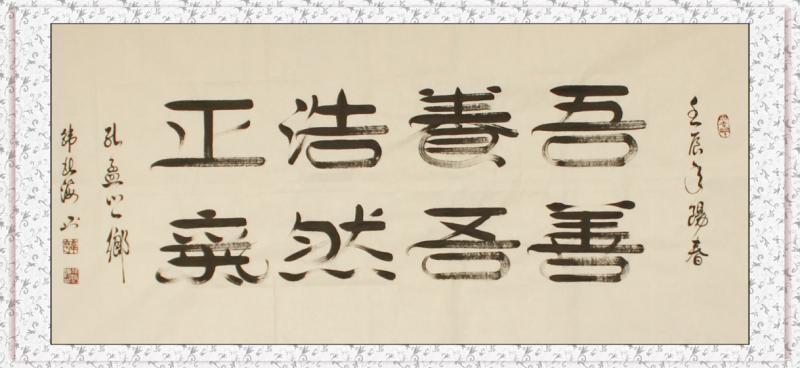 壬辰年陽春
吾善
養吾
浩然
正氣
孔孟之鄉
海书